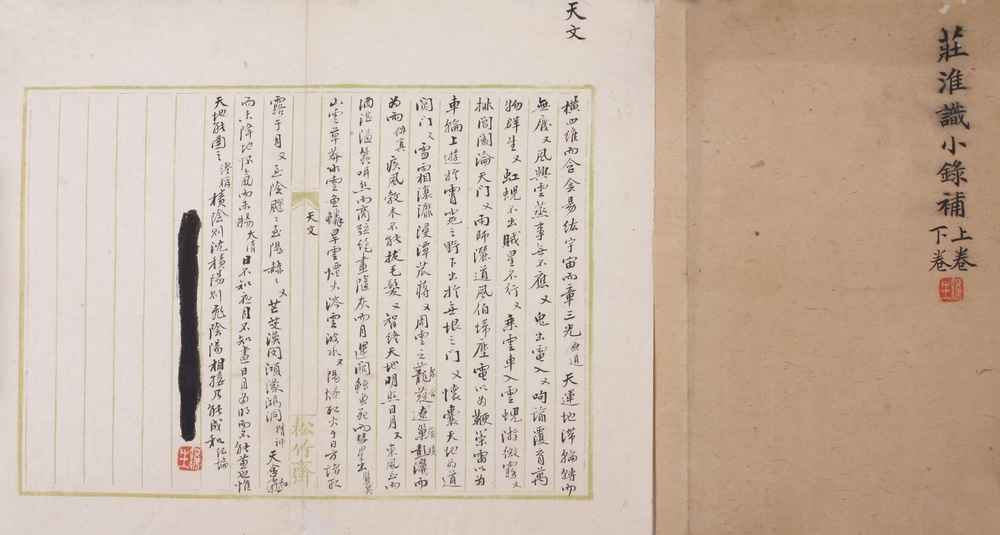 莊淮識小錄補
上卷
下卷
天文
橫四維而含侌昜紘宇宙而章三光 原道 天運地滯輪轉而
無廢又風興雲蒸事無不應又鬼出電入又呴諭覆育萬
物群生又虹蜺不出賊星不行又乘雲車入雲蜺游微霧又
排閶闔淪天門又雨師灑道風伯埽塵電以為鞭策雷以為
車輪上遊於霄雿之野下出於無垠之門又懷囊天地為道
關門又雪霜滾灖浸潭苽蔣又周雲之蘢蓯遼巢彭濞而
為雨 俶真 疾風教木不能拔毛髮又智終天地明照日月又東風至而
酒湛溢蠶咡絲而商弦絕畫隨灰而月運闕鯨魚死而彗星出 覽冥
山雲草莽水雲魚鱗旱雲煙火涔雲波水又陽燧取火于日方諸取
露于月又至陰飂飂至陽赫赫又芒芠漠閔澒濛鴻洞 精神 天
而未降地而未揚 日不知夜月不知晝日月為明而不能兼也惟
天地能函之 積陰則沈積陽則飛陰陽相接乃能成和 氾論
天文
松竹齋